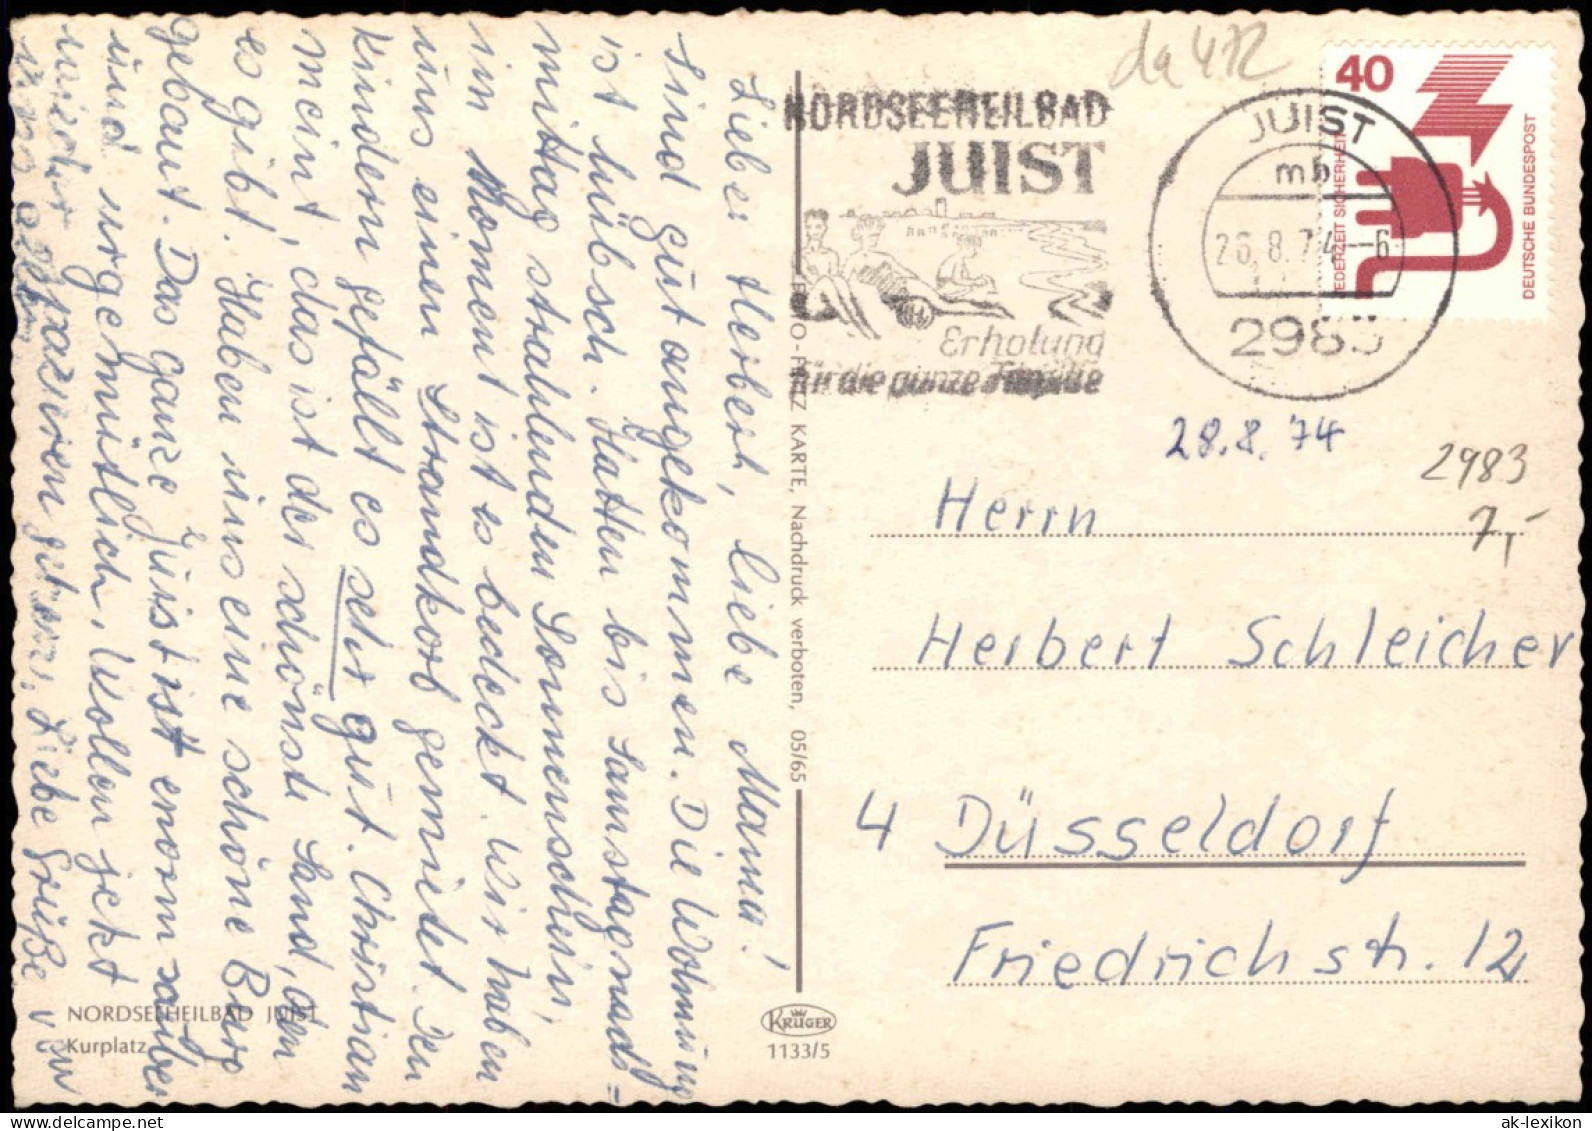 Lieber Herbert, liebe Mama!
Sind gut angekommen. Die Wohnung
ist hübsch. Hatten bis Samstagnach=
mittag strahlenden Sonnenschein,
im Moment ist es bedeckt. Wir haben
uns einen Strandkorb gemietet. Den
Kindern gefällt es sehr gut. Christian
meint, das ist der schönste Sand, den
es gibt. Haben uns eine schöne Burg
gebaut. Das ganze Juist ist enorm sauber
und urgemütlich. Wollen jetzt
wieder spazieren gehen. Liebe Grüße von
uns allen
NORDSEEHEILBAD JUIST
Kurplatz
KARTE, Nachdruck verboten, 05/65
KRÜGER
1133/5
da 472
NORDSEEHEILBAD
JUIST
Erholung
für die ganze Familie
JUIST
mb
26.8.74--6
2983
40
JEDERZEIT SICHERHEIT
DEUTSCHE BUNDESPOST
28.8.74
2983
7,-
Herrn
Herbert Schleicher
4 Düsseldorf
Friedrichstr. 12
ak-lexikon